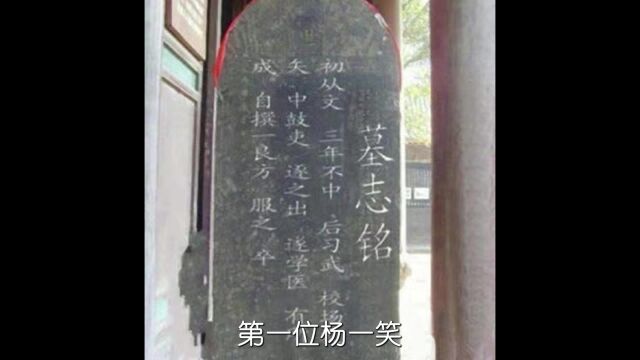 墓志铭
初从文 三年不中 后习武 校场
矢 中鼓吏 逐之出 遂学医 有
成 自撰一良方 服之 卒
第一位杨一笑